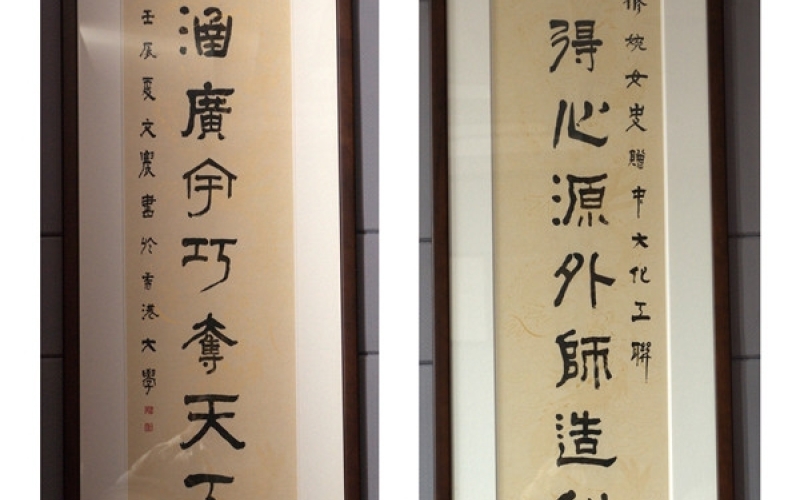 修婉女史贈中大化工聯
得心源外師造
涵廣宇巧奪天
壬辰夏文農書於香港大學